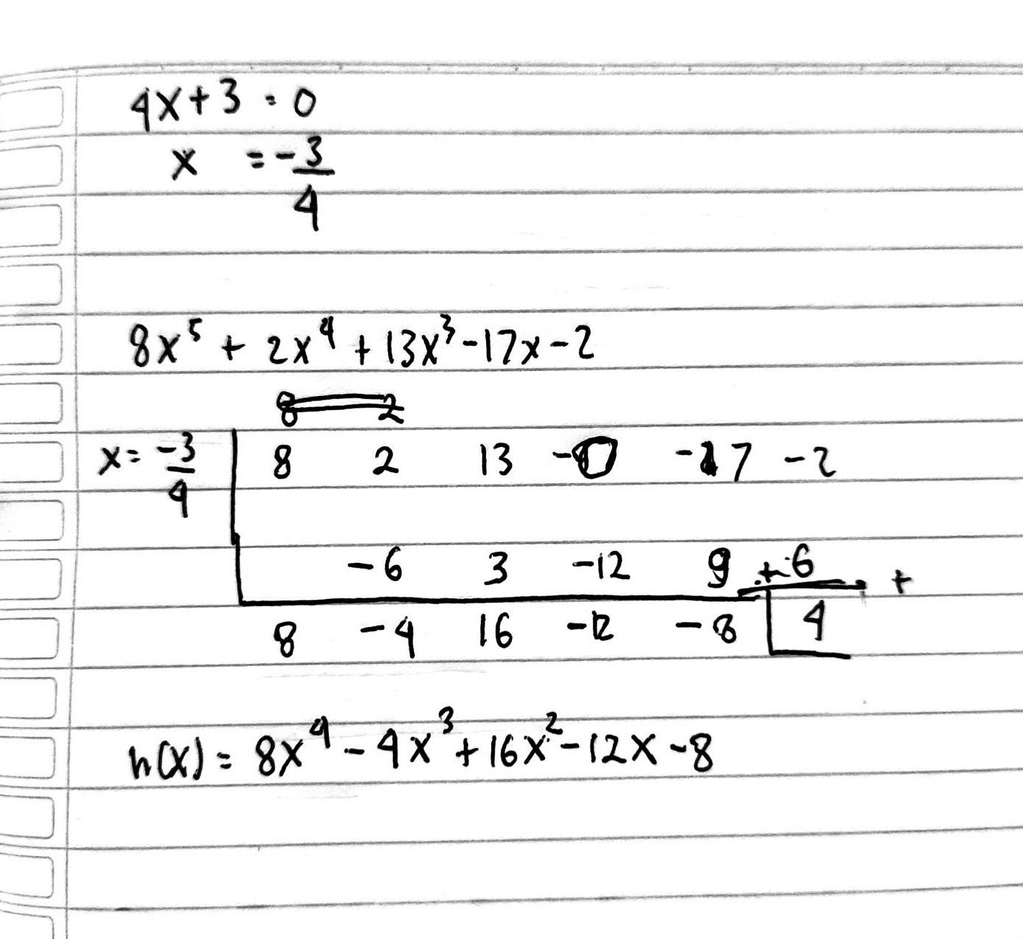 4x+3=0
x = -3/4
8x⁵ + 2x⁴ + 13x³ - 17x - 2
8 2
x = -3/4 | 8 2 13 0 -17 -2
-6 3 -12 9 +6 +
8 -4 16 -12 -8 4
h(x) = 8x⁴ - 4x³ + 16x² - 12x - 8